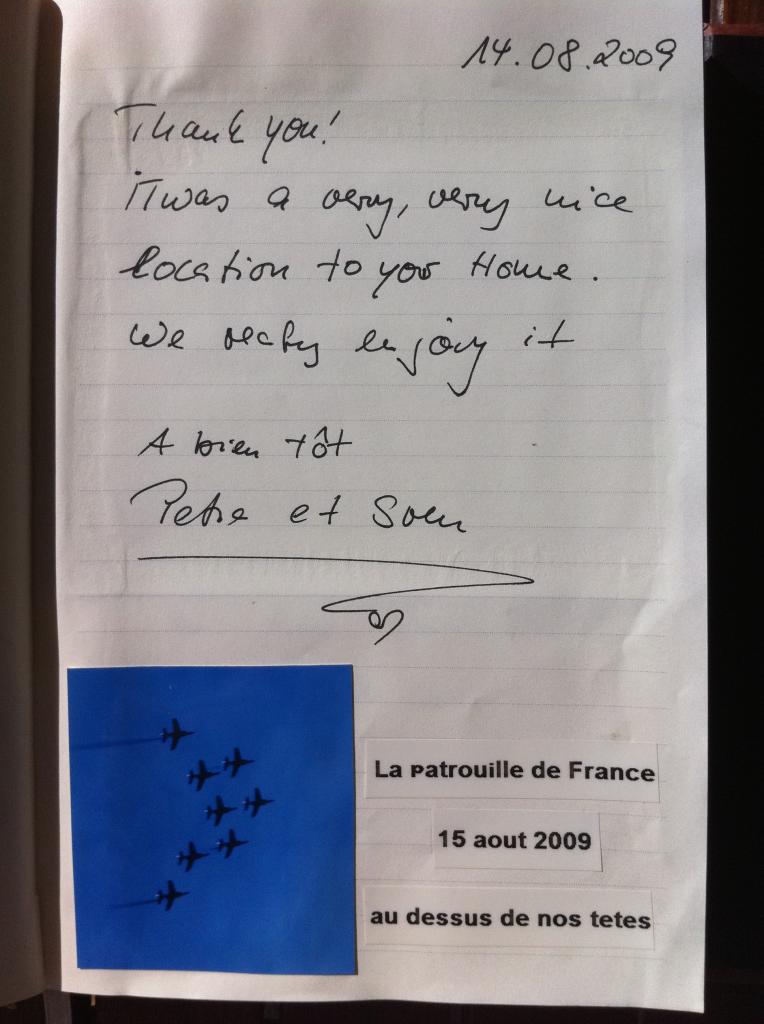 14.08.2009
Thank you!
it was a very, very nice
location to your Home.
We really enjoy it
A bien tôt
Petra et Sven
La patrouille de France
15 aout 2009
au dessus de nos tetes